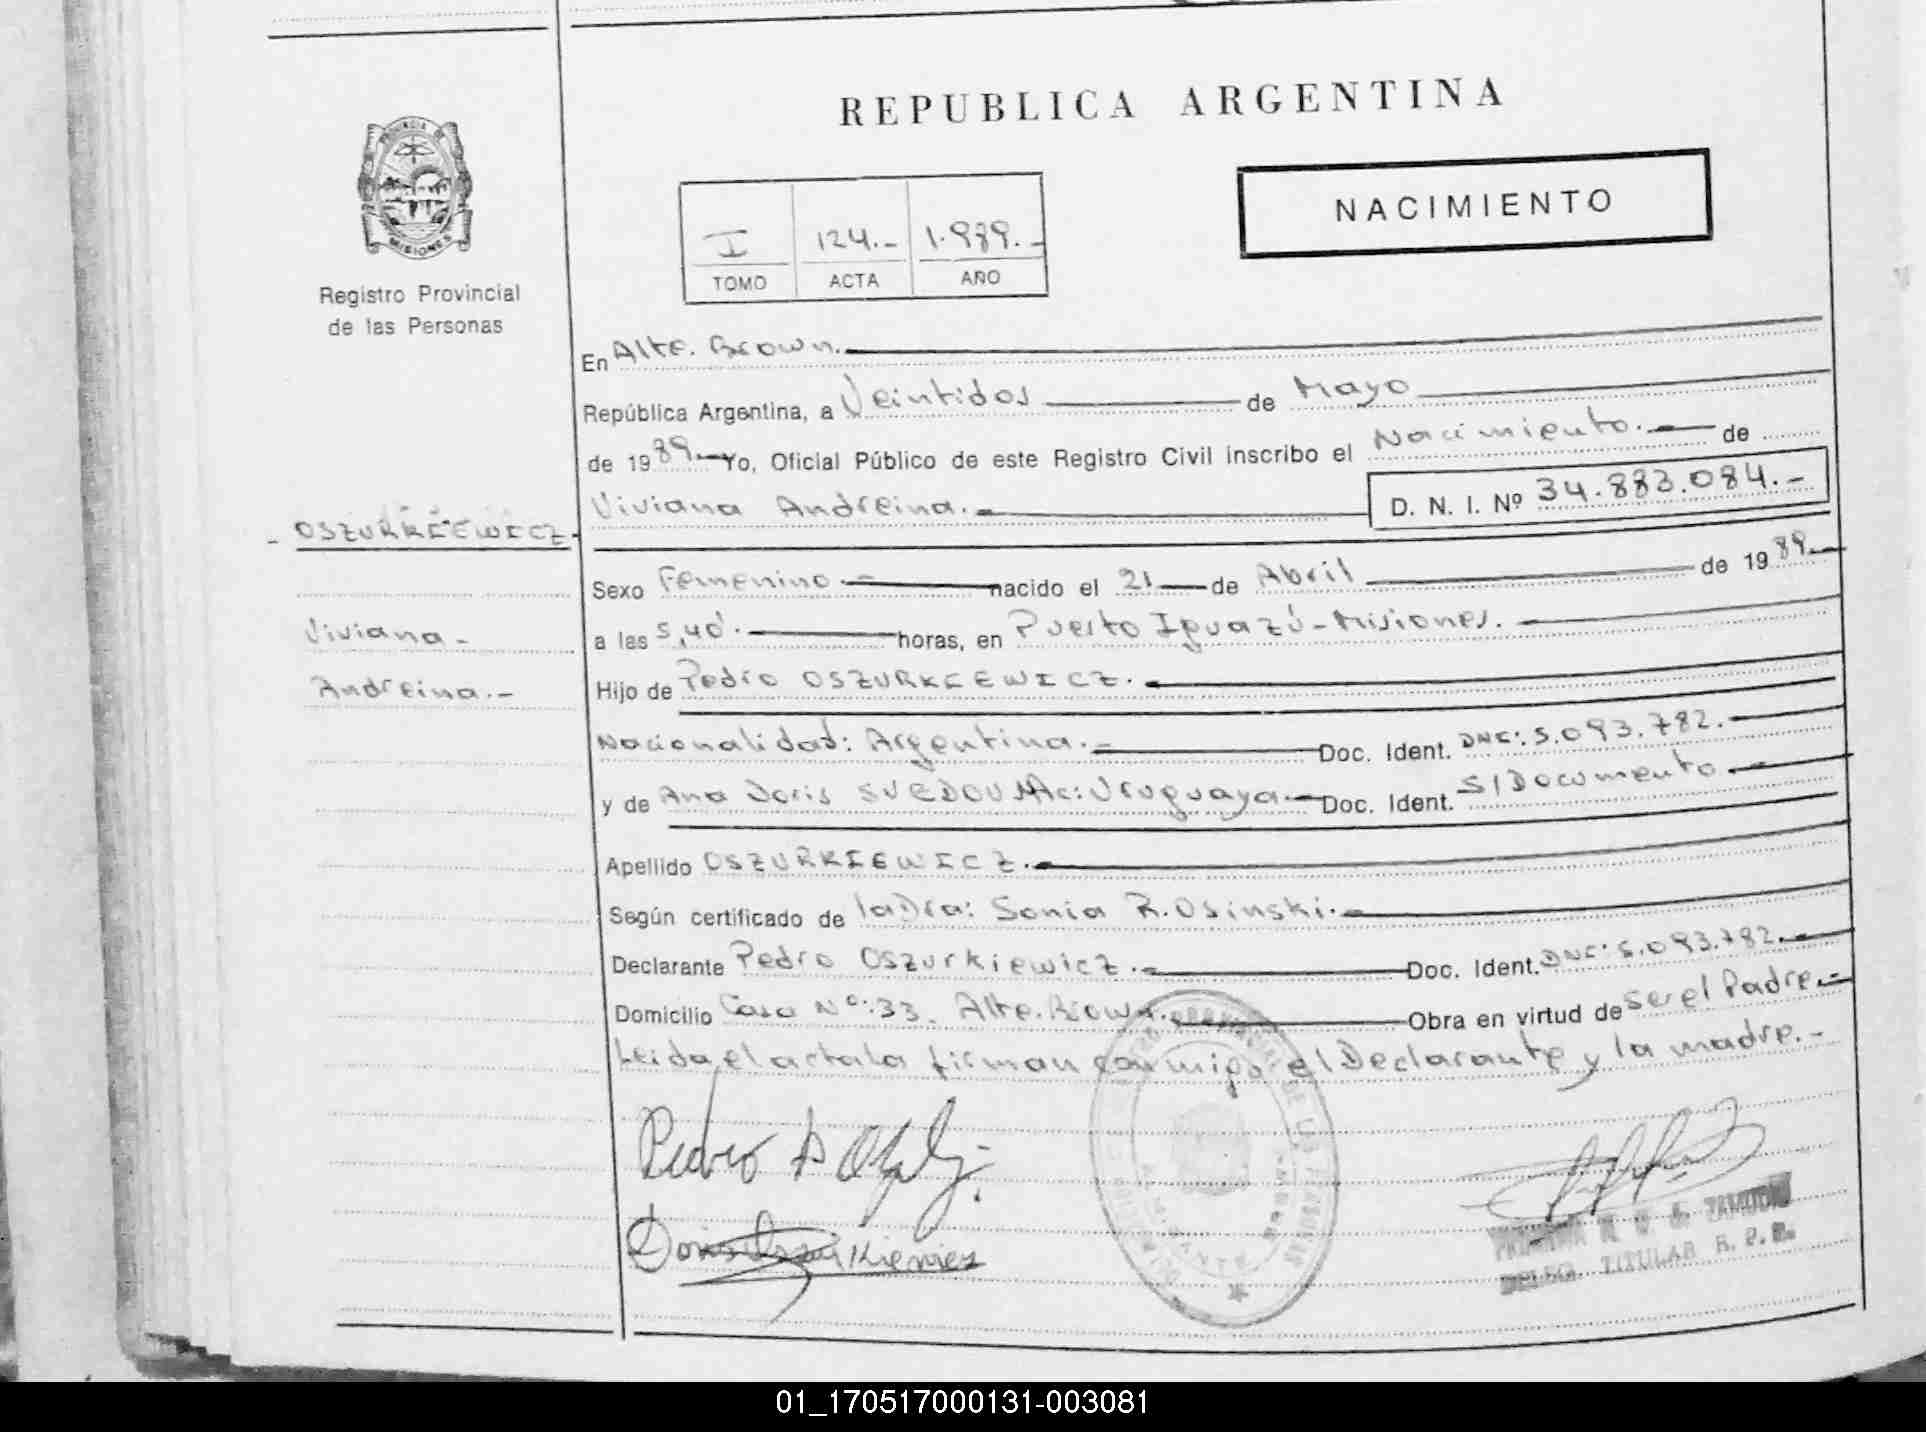 REPUBLICA ARGENTINA
PROVINCIA DE
MISIONES
Registro Provincial
de las Personas
NACIMIENTO
I 124.- 1.989.-
TOMO ACTA AÑO
En Alte. Brown.
República Argentina, a Veintidos de Mayo
de 1989.- Yo, Oficial Público de este Registro Civil inscribo el Nacimiento.- de
Viviana Andreina.- D. N. I. Nº 34.883.084.-
- OSZURKIEWICZ-
Viviana -
Andreina.-
Sexo Femenino.- nacido el 21 de Abril de 1989.-
a las 5,40'. horas, en Puerto Iguazú-Misiones.-
Hijo de Pedro OSZURKIEWICZ.-
Nacionalidad: Argentina.- Doc. Ident. DNI: 5.093.782.-
y de Ana Doris SVEDOV Nac: Uruguaya.- Doc. Ident. S/Documento
Apellido OSZURKIEWICZ.-
Según certificado de la Dra: Sonia R. Osinski.-
Declarante Pedro Oszurkiewicz.- Doc. Ident. DNI: 5.093.782.-
Domicilio Casa Nº:33. Alte. Brown.- Obra en virtud de Ser el Padre.-
Leida el acta la firman conmigo el Declarante y la madre.-
Pedro
Doris
DELEG. TITULAR R. P. P.
01_170517000131-003081